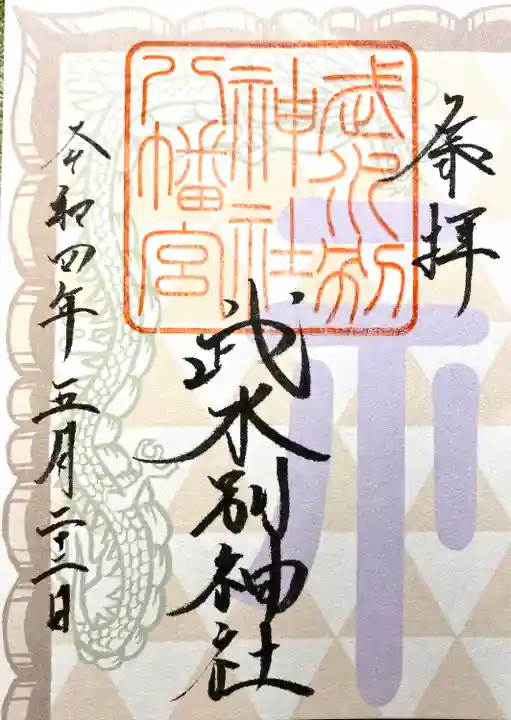 奉拝
武水別
神社
八幡宮
武水別神社
令和四年五月二十二日